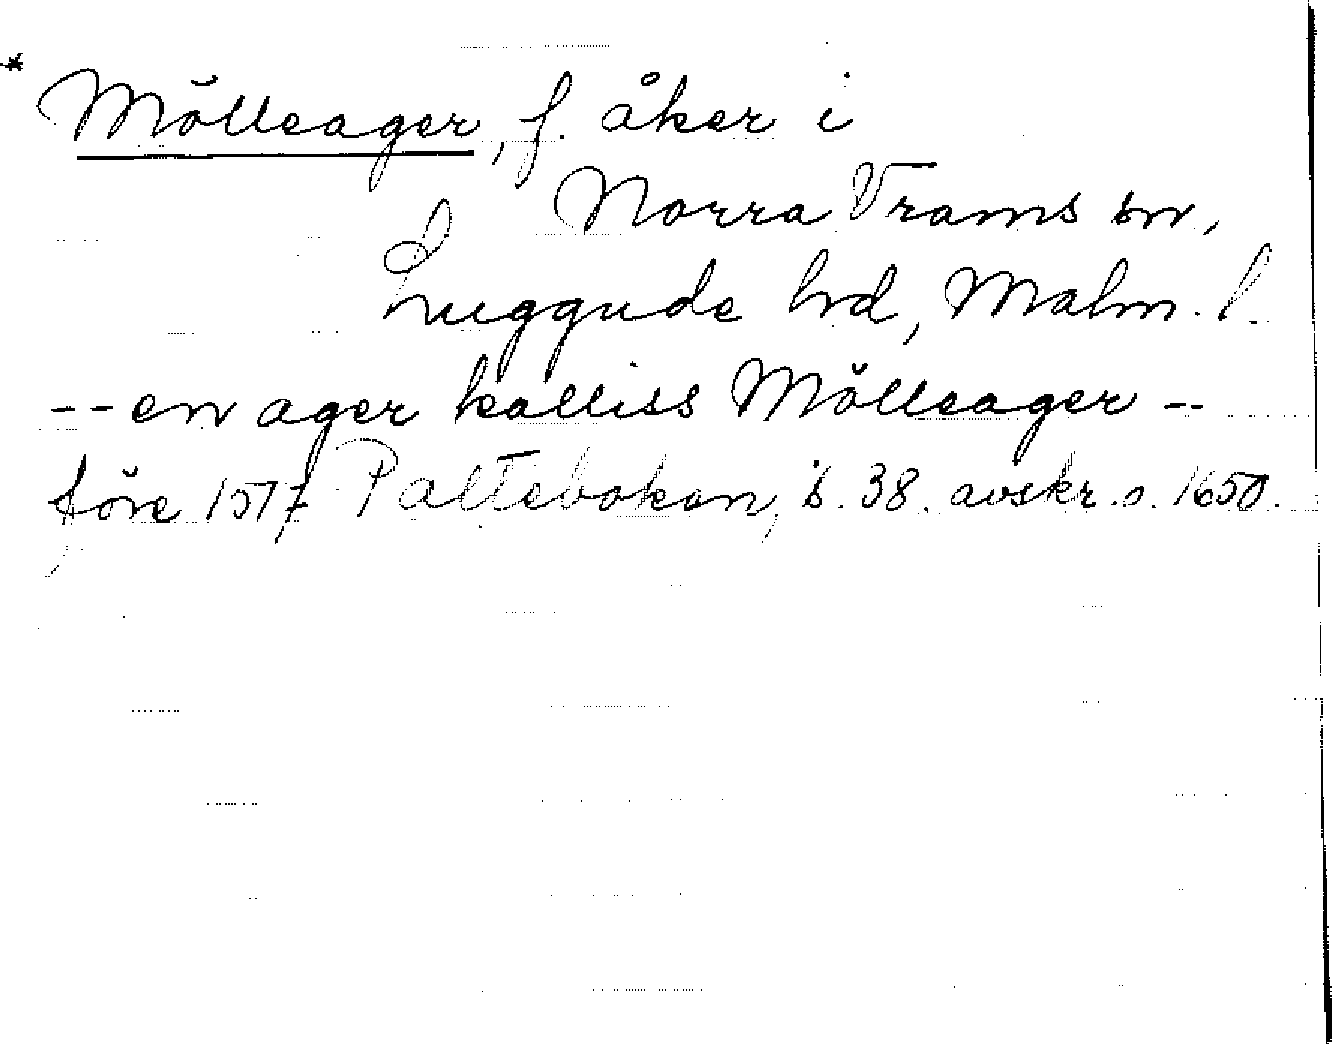 * Mölleager, f. åker i
Norra Vrams sn,
Luggude hd, Malm. l.
-- en ager kalliss Mölleager --
före 1577 Palteboken, s. 38. avskr. o. 1650.